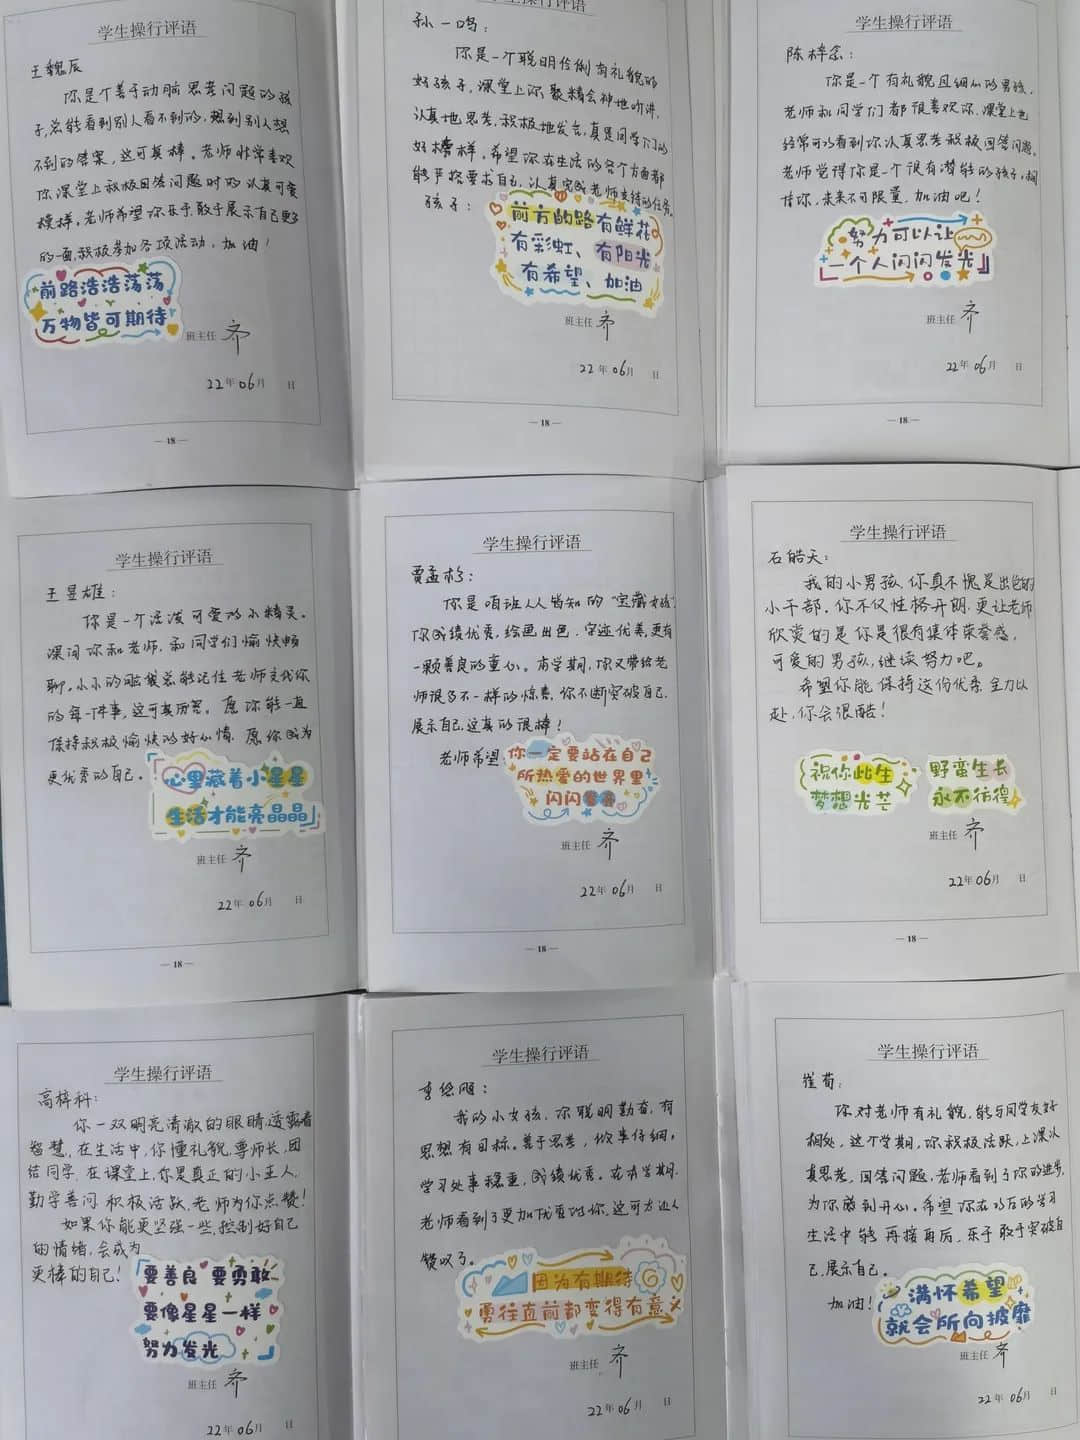 学生操行评语
王魏辰
你是个善于动脑思考问题的孩
子,总能看到别人看不到的,想到别人想
不到的答案,这可真棒。老师非常喜欢
你课堂上积极回答问题时的认真可爱
模样,老师希望你乐于,敢于展示自己更多
的一面,积极参加各项活动,加油!
前路浩浩荡荡
万物皆可期待
班主任 齐
22年06月 日
—18—
学生操行评语
孙一鸣:
你是一个聪明伶俐有礼貌的
好孩子,课堂上你聚精会神地听讲,
认真地思考,积极地发言,真是同学们的
好榜样。希望你在生活的各个方面都
能严格要求自己,认真完成老师支持的任务。
孩子:
前方的路有鲜花
有彩虹、有阳光
有希望、加油
班主任 齐
22年06月 日
—18—
学生操行评语
陈梓念:
你是一个有礼貌且细心的男孩,
老师和同学们都很喜欢你,课堂上也
经常可以看到你认真思考积极回答问题。
老师觉得你是一个很有潜能的孩子,相
信你,未来不可限量,加油吧!
努力可以让
一个人闪闪发光
班主任 齐
22年06月 日
—18—
学生操行评语
王昱雄:
你是一个活泼可爱的小精灵。
课间你和老师,和同学们愉快畅
聊。小小的脑袋总能记住老师交代你
的每一件事,这可真厉害。愿你能一直
保持积极愉快的好心情,愿你成为
更优秀的自己。
心里藏着小星星
生活才能亮晶晶
班主任 齐
22年06月 日
—18—
学生操行评语
贾孟杉:
你是咱班人人皆知的“宝藏女孩”
你成绩优秀,绘画出色,字迹优美,更有
一颗善良的童心。本学期,你又带给老
师很多不一样的惊喜,你不断突破自己,
展示自己,这真的很棒!
老师希望
你一定要站在自己
所热爱的世界里
闪闪发亮
班主任 齐
22年06月 日
—18—
学生操行评语
石皓天:
我的小男孩,你真不愧是出色的
小干部,你不仅性格开朗,更让老师
欣赏的是你是很有集体荣誉感,
可爱的男孩,继续努力吧。
希望你能保持这份优秀,全力以
赴,你会很酷!
祝你此生
梦想光芒
野蛮生长
永不彷徨
班主任 齐
22年06月 日
—18—
学生操行评语
高梓科:
你一双明亮清澈的眼睛,透露着
智慧,在生活中,你懂礼貌,尊师长,团
结同学,在课堂上,你是真正的小主人,
勤学善问,积极活跃,老师为你点赞!
如果你能更坚强一些,控制好自己
的情绪,会成为
更棒的自己!
要善良 要勇敢
要像星星一样
努力发光
班主任 齐
22年06月 日
学生操行评语
李
我的小女孩,你聪明勤奋,有
思想有目标。善于思考,做事仔细。
学习处事稳重,成绩优秀。在本学期,
老师看到了更加优秀的你,这可太让人
赞叹了。
因为有期待
勇往直前都变得有意义
班主任 齐
22年06月 日
学生操行评语
崔荀:
你对老师有礼貌,能与同学友好
相处,这个学期,你积极活跃,上课认
真思考,回答问题,老师看到了你的进步,
为你感到开心。希望你在以后的学习
生活中能再接再厉,乐于敢于突破自
己,展示自己。
加油!
满怀希望
就会所向披靡
班主任 齐
22年06月 日